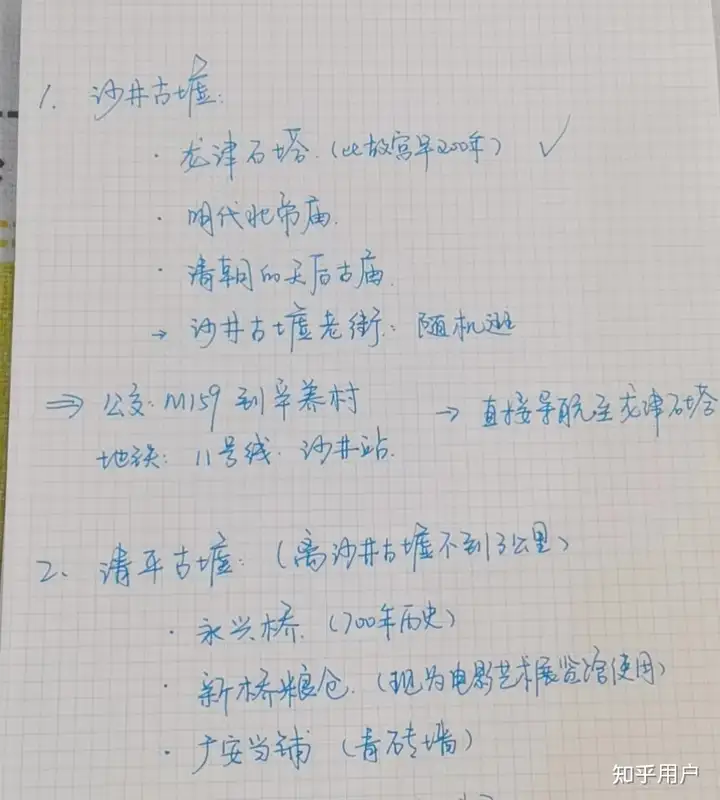 1. 沙井古墟:
· 龙津石塔.(比故宫早200年) ✓
· 明代北帝庙.
· 清朝的天后古庙.
→ 沙井古墟老街: 随机逛
⇒ 公交: M159 到辛养村
地铁: 11号线. 沙井站.
→ 直接导航至龙津石塔
2. 清平古墟: (离沙井古墟不到3公里)
· 永兴桥. (700年历史)
· 新桥粮仓. (现为电影艺术展览馆使用)
· 广安当铺 (青砖墙)
知乎用户